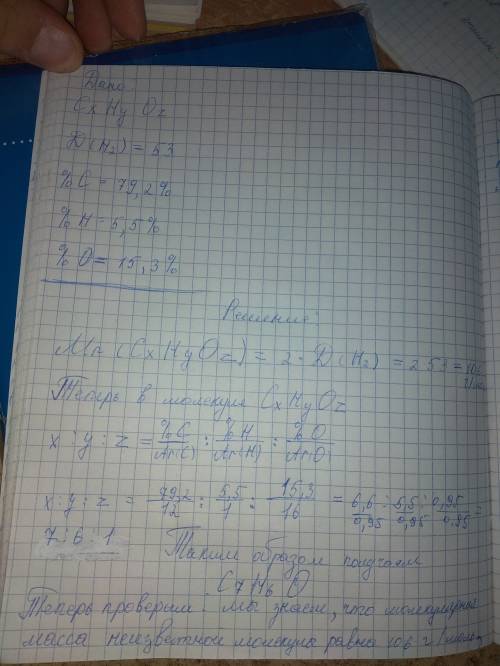 Дано
CxHyOz
D(H₂) = 53
%C = 79,2%
%H = 5,5%
%O = 15,3%
Решение:
Mr (CxHyOz) = 2 · D(H₂) = 2 · 53 =
Теперь в молекуле CxHyOz
x : y : z = %C/Ar(C) : %H/Ar(H) : %O/Ar(O)
x : y : z = 79,2/12 : 5,5/1 : 15,3/16 = 6,6/0,95 : 5,5/0,95 : 0,95/0,95 =
7 : 6 : 1 Таким образом получаем
C₇H₆O
Теперь проверим: Мы знаем, что молекулярная
масса неизвестной молекула равна 106 г/моль